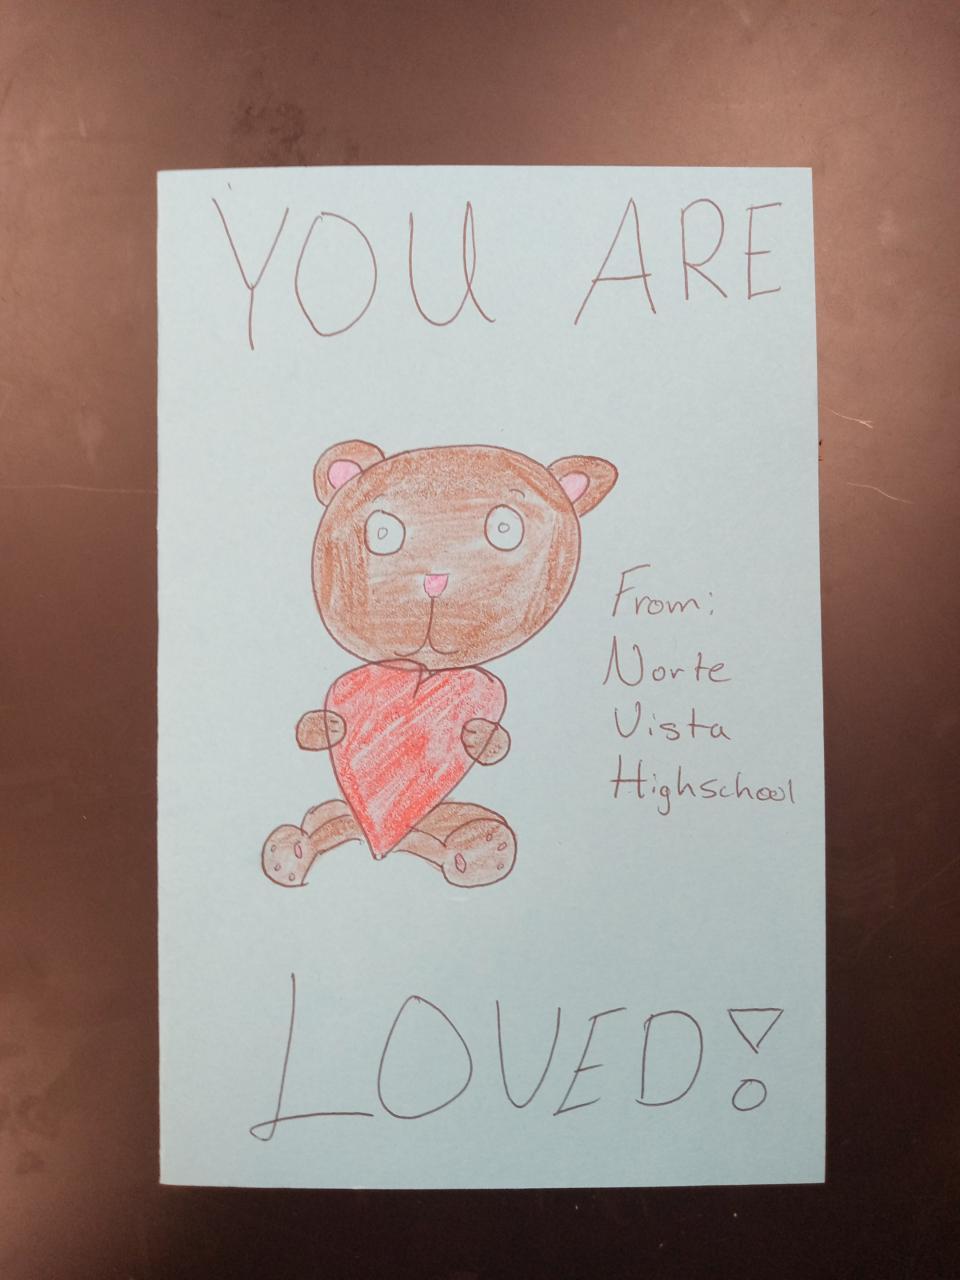 YOU ARE
From:
Norte
Vista
Highschool
LOVED!